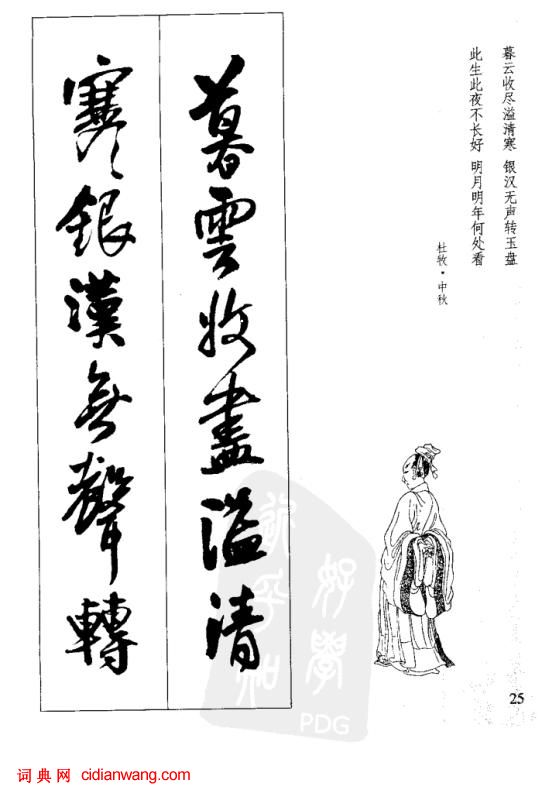 暮云收尽溢清寒 银汉无声转玉盘
此生此夜不长好 明月明年何处看
杜牧·中秋
暮雲收盡溢清
寒銀漢無聲轉
25
好學
PDG
词典网 cidianwang.com